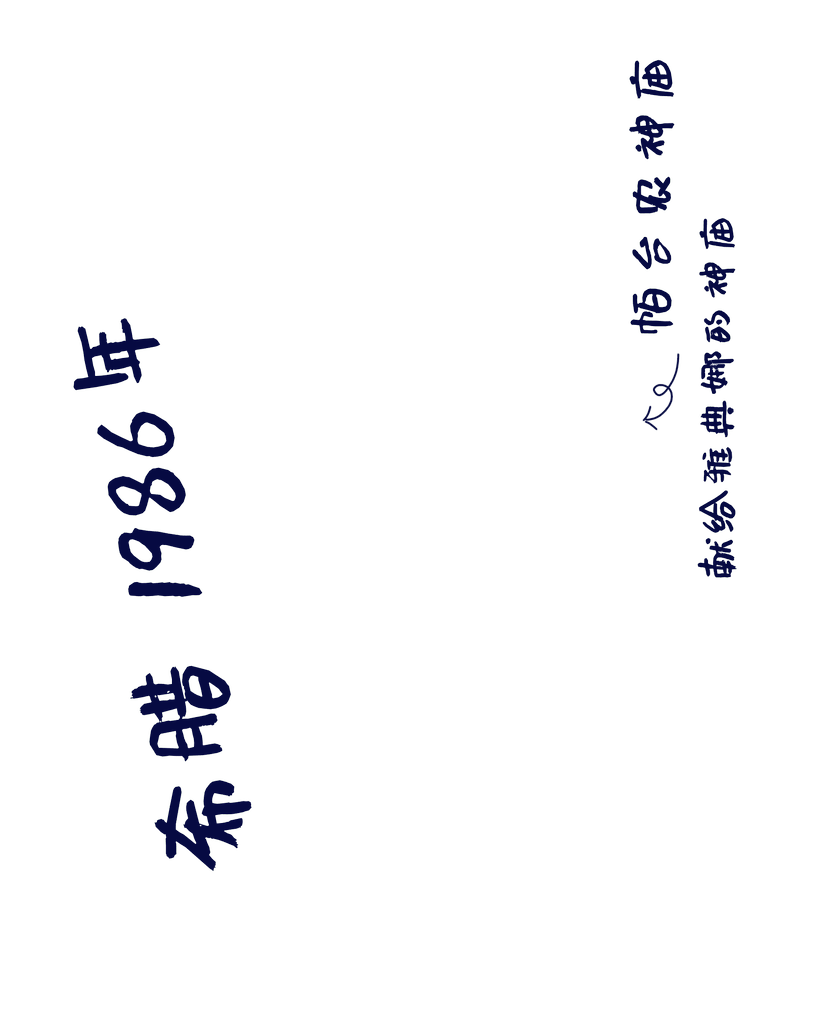 希腊 1986年
帕台农神庙
献给雅典娜的神庙